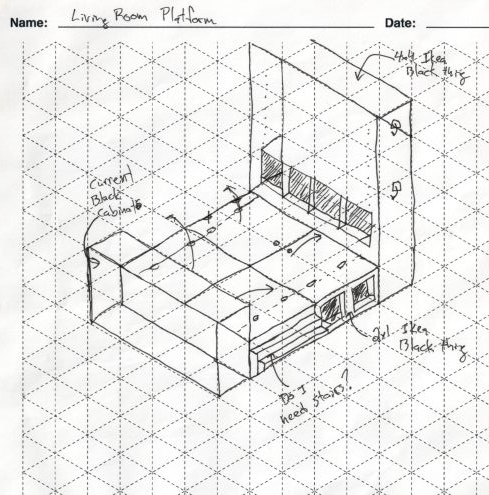 Name: Living Room Platform
Date:
4x4 Ikea
Black thing
Current
Black
Cabinets
2x1 Ikea
Black thing
Do I
need stairs?